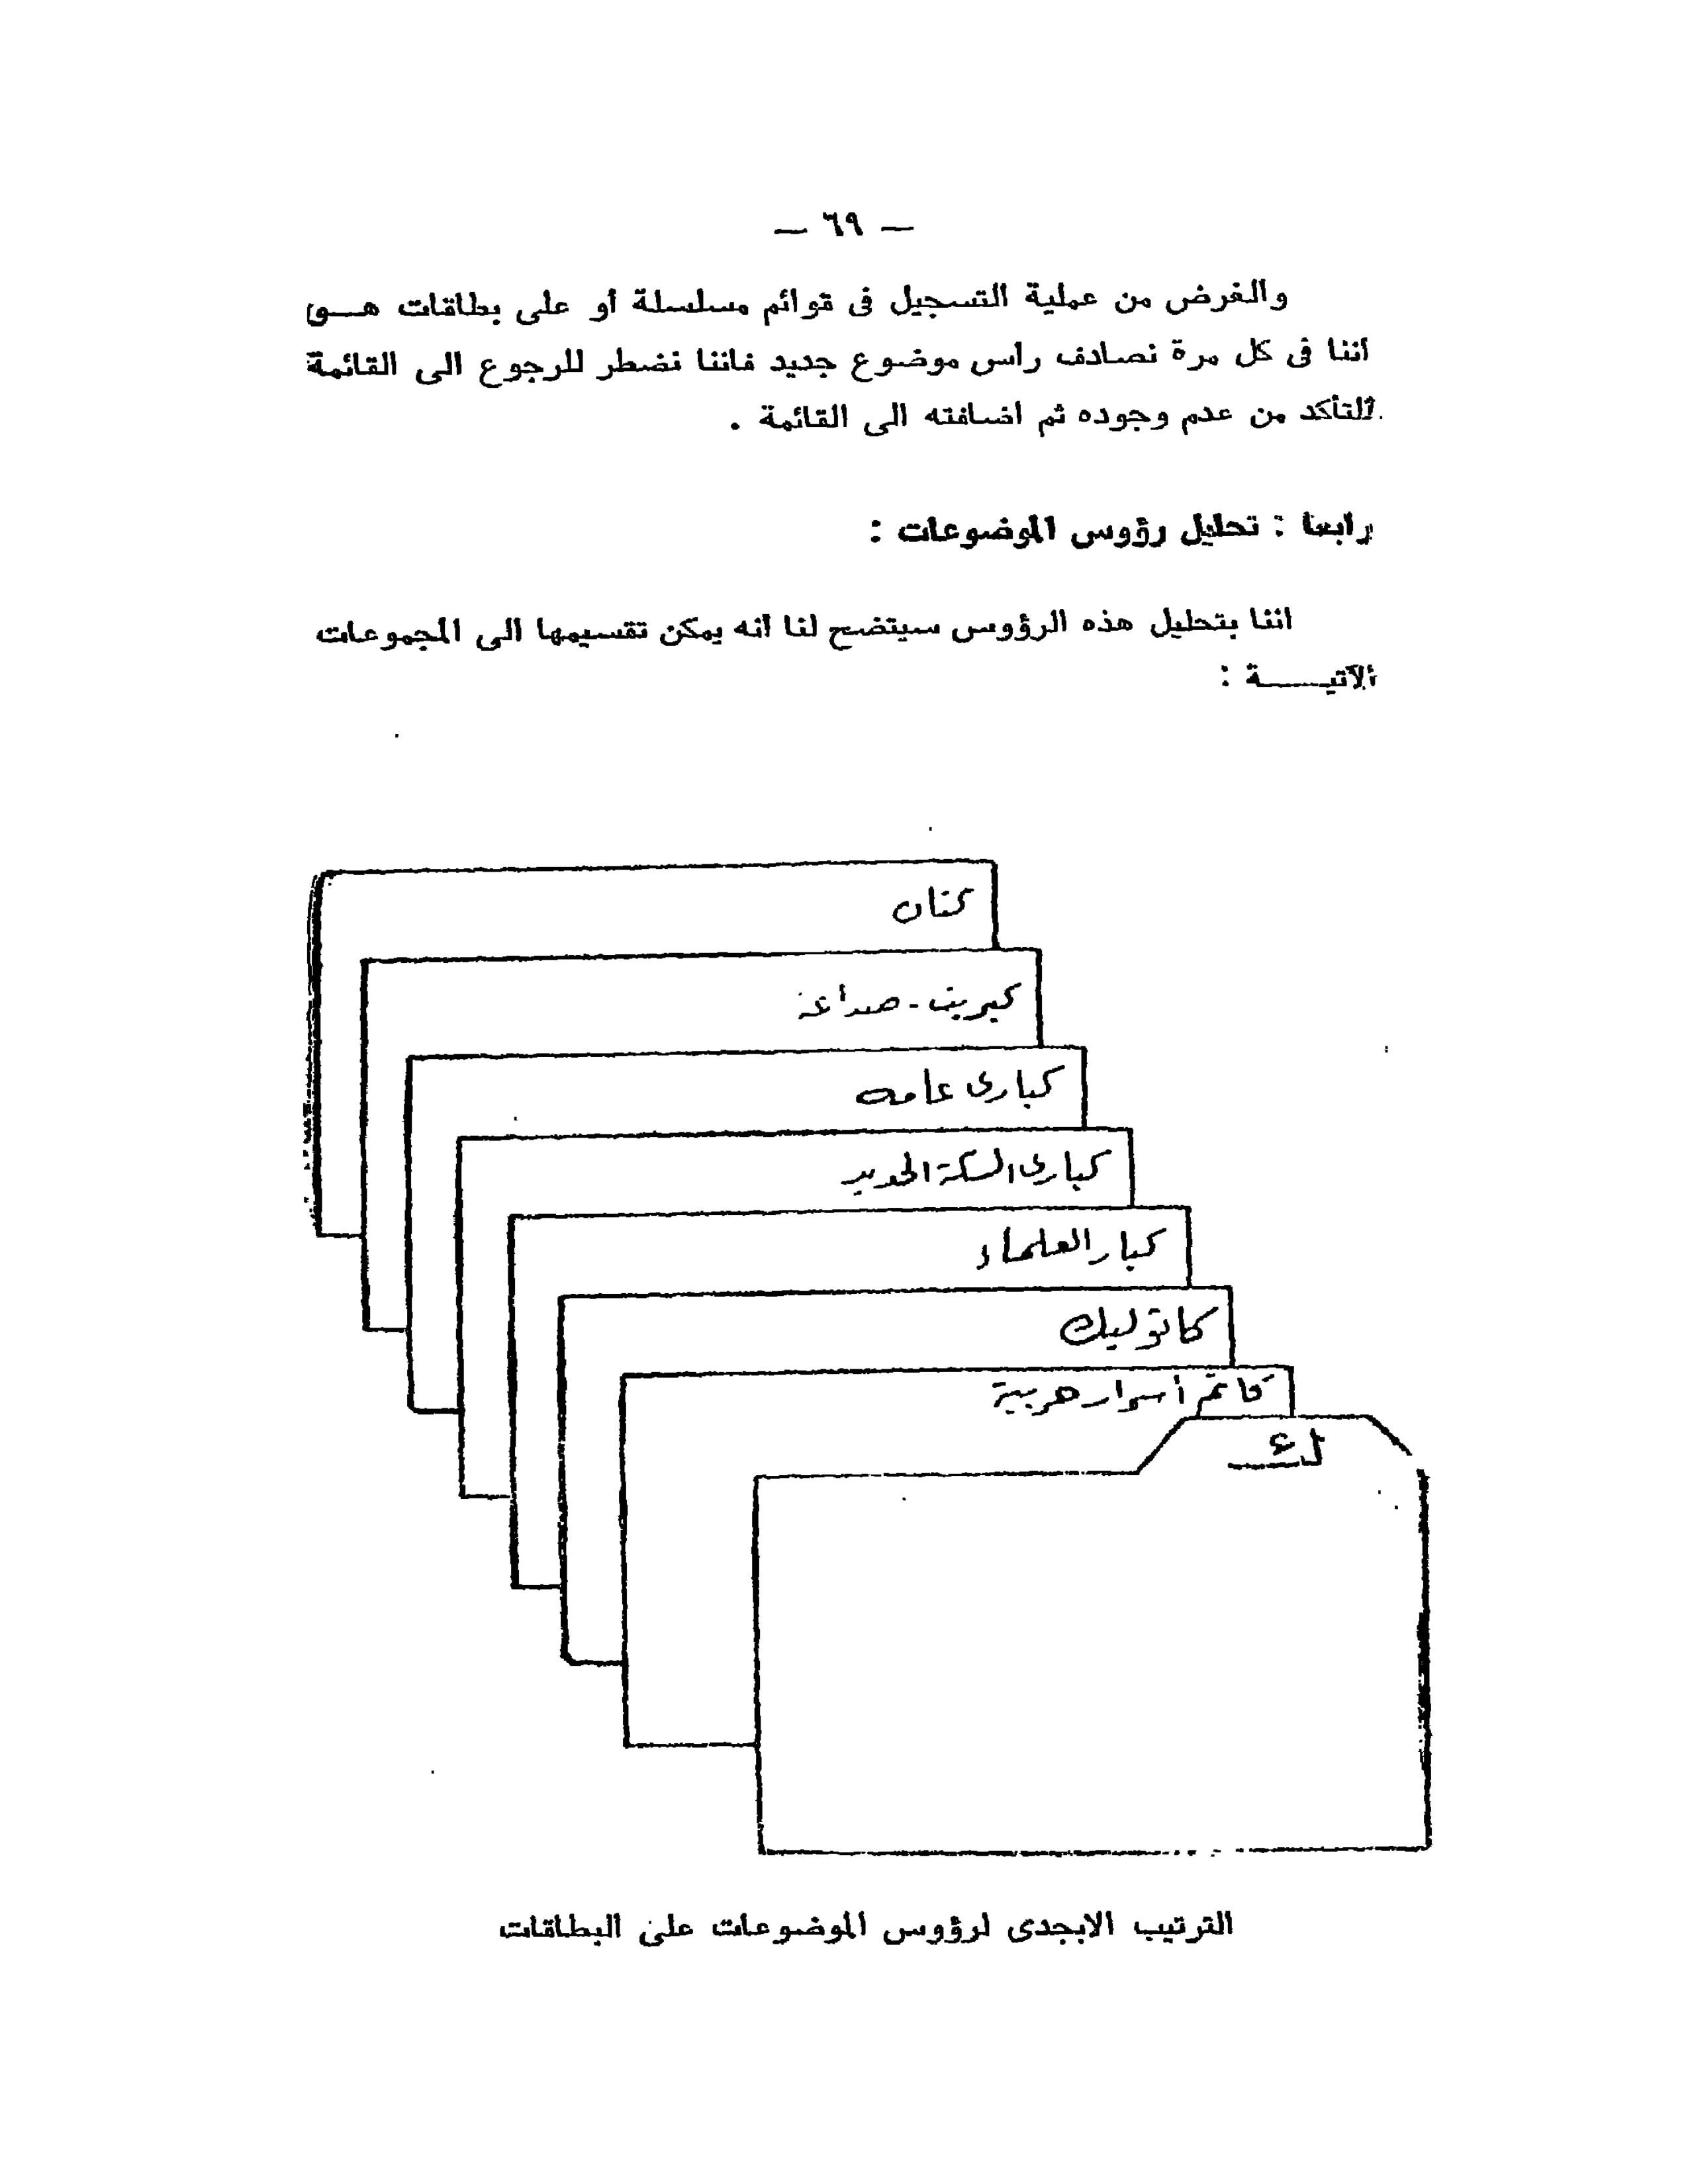 — ٦٩ —
والغرض من عملية التسجيل فى قوائم مسلسلة أو على بطاقات هـــو
أننا فى كل مرة نصادف رأس موضوع جديد فاننا نضطر للرجوع الى القائمة
للتأكد من عدم وجوده ثم اضافته الى القائمة .
رابعا : تحليل رؤوس الموضوعات :
اننا بتحليل هذه الرؤوس سيتضح لنا أنه يمكن تقسيمها الى المجموعات
الآتيـــــة :
كتان
كبريت - صناعة
كبارى عامه
كبارى السكة الحديد
كبار العلماء
كاثوليك
كاتم أسرار حربية
ك
الترتيب الابجدى لرؤوس الموضوعات على البطاقات